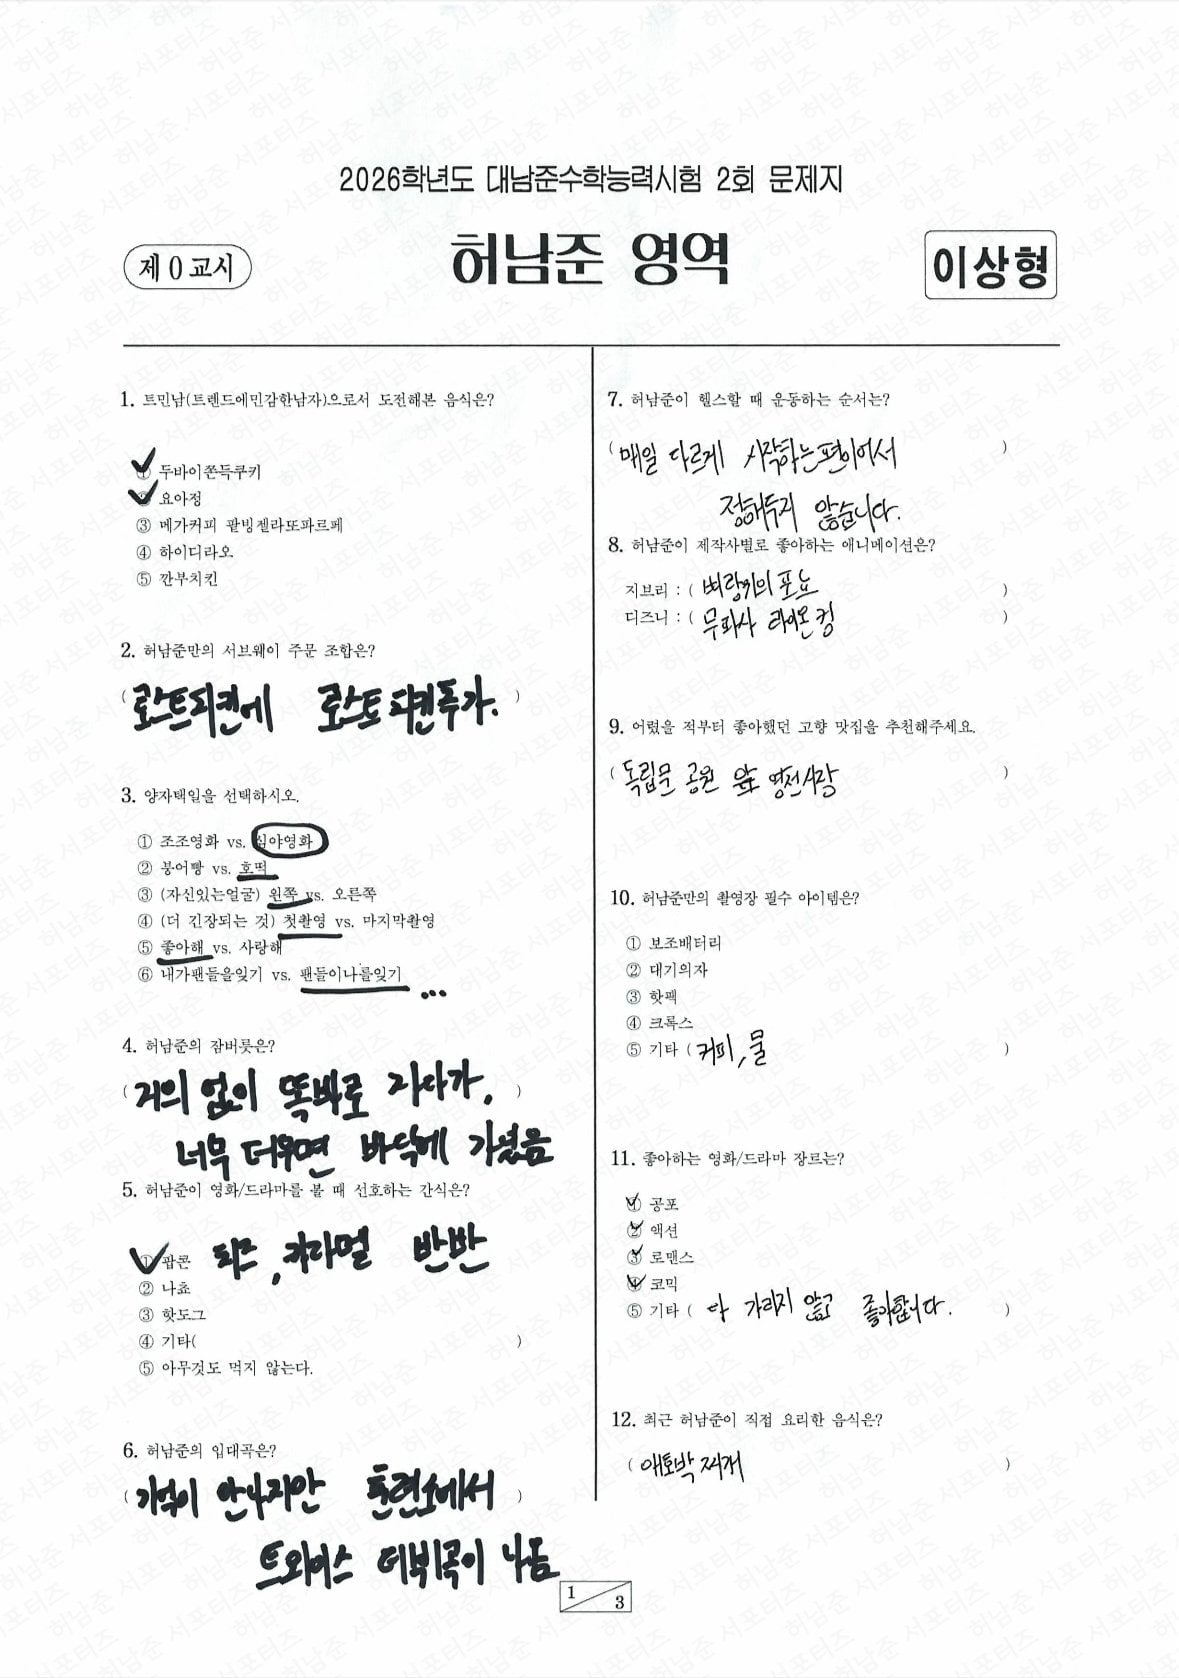 2026학년도 대남준수학능력시험 2회 문제지
제 0 교시
허남준 영역
이상형
1. 트민남(트렌드에민감한남자)으로서 도전해본 음식은?
① 두바이쫀득쿠키
② 요아정
③ 메가커피 팥빙젤라또파르페
④ 하이디라오
⑤ 깐부치킨
2. 허남준만의 서브웨이 주문 조합은?
( 로스트치킨에 로스트 치킨추가. )
3. 양자택일을 선택하시오.
① 조조영화 vs. 심야영화
② 붕어빵 vs. 호떡
③ (자신있는얼굴) 왼쪽 vs. 오른쪽
④ (더 긴장되는 것) 첫촬영 vs. 마지막촬영
⑤ 좋아해 vs. 사랑해
⑥ 내가팬들을잊기 vs. 팬들이나를잊기 ...
4. 허남준의 잠버릇은?
( 거의 없이 똑바로 자다가, )
너무 더우면 바닥에 가있음
5. 허남준이 영화/드라마를 볼 때 선호하는 간식은?
① 팝콘 치즈, 카라멜 반반
② 나쵸
③ 핫도그
④ 기타( )
⑤ 아무것도 먹지 않는다.
6. 허남준의 입대곡은?
( 기억이 안나지만 훈련소에서 )
트와이스 데뷔곡이 나옴
7. 허남준이 헬스할 때 운동하는 순서는?
( 매일 다르게 시작하는편이어서 )
정해두지 않습니다.
8. 허남준이 제작사별로 좋아하는 애니메이션은?
지브리 : ( 벼랑위의 포뇨 )
디즈니 : ( 무파사 라이온 킹 )
9. 어렸을 적부터 좋아했던 고향 맛집을 추천해주세요.
( 독립문 공원 앞 영천시장 )
10. 허남준만의 촬영장 필수 아이템은?
① 보조배터리
② 대기의자
③ 핫팩
④ 크록스
⑤ 기타 ( 커피, 물 )
11. 좋아하는 영화/드라마 장르는?
① 공포
② 액션
③ 로맨스
④ 코믹
⑤ 기타 ( 다 가리지 않고 좋아합니다. )
12. 최근 허남준이 직접 요리한 음식은?
( 애호박 찌개 )
1 / 3
허남준 서포터즈